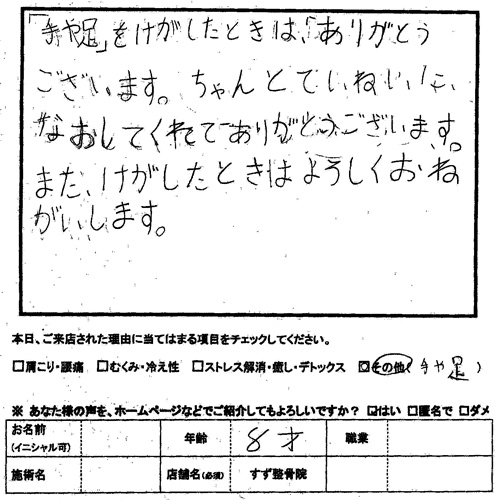 「手や足」をけがしたときは、「ありがとう
ございます。ちゃんとていねいに
なおしてくれてありがとうございます。
また、けがしたときはよろしくおね
がいします。
本日、ご来店された理由に当てはまる項目をチェックしてください。
□肩こり・腰痛 □むくみ・冷え性 □ストレス解消・癒し・デトックス ☑その他(手や足)
※ あなた様の声を、ホームページなどでご紹介してもよろしいですか? ☑はい □匿名で □ダメ
お名前 (イニシャル可) 年齢 8才 職業
施術名 店舗名(必須) すず整骨院